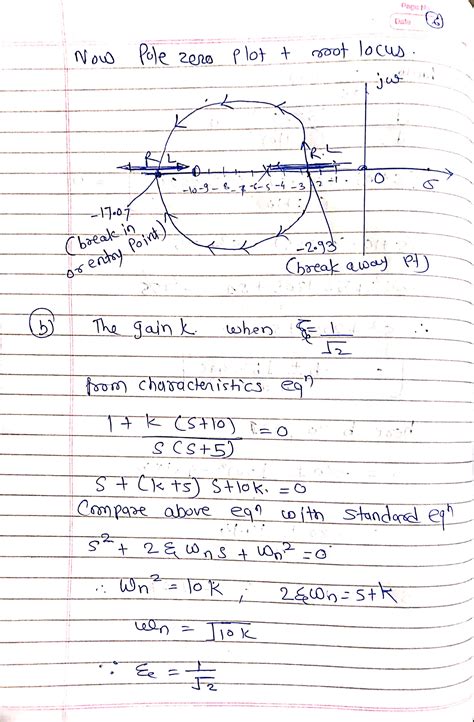 Page No
Date
Now Pole zero plot + root locus.
jω
R L
R.L
-10 -9 -8 -7 -6 -5 -4 -3 -2 -1 0 σ
-17.07
(break in
or entry point)
-2.93
(break away pt)
(b) The gain k when ξ = 1/√2
from characteristics eqⁿ
1 + k (s+10) / s (s+5) = 0
s + (k+5) s + 10k. = 0
Compare above eqⁿ with standard eqⁿ
s² + 2ξωns + ωn² = 0
∴ ωn² = 10k , 2ξωn = 5+k
ωn = √10k
∵ ξ = 1/√2